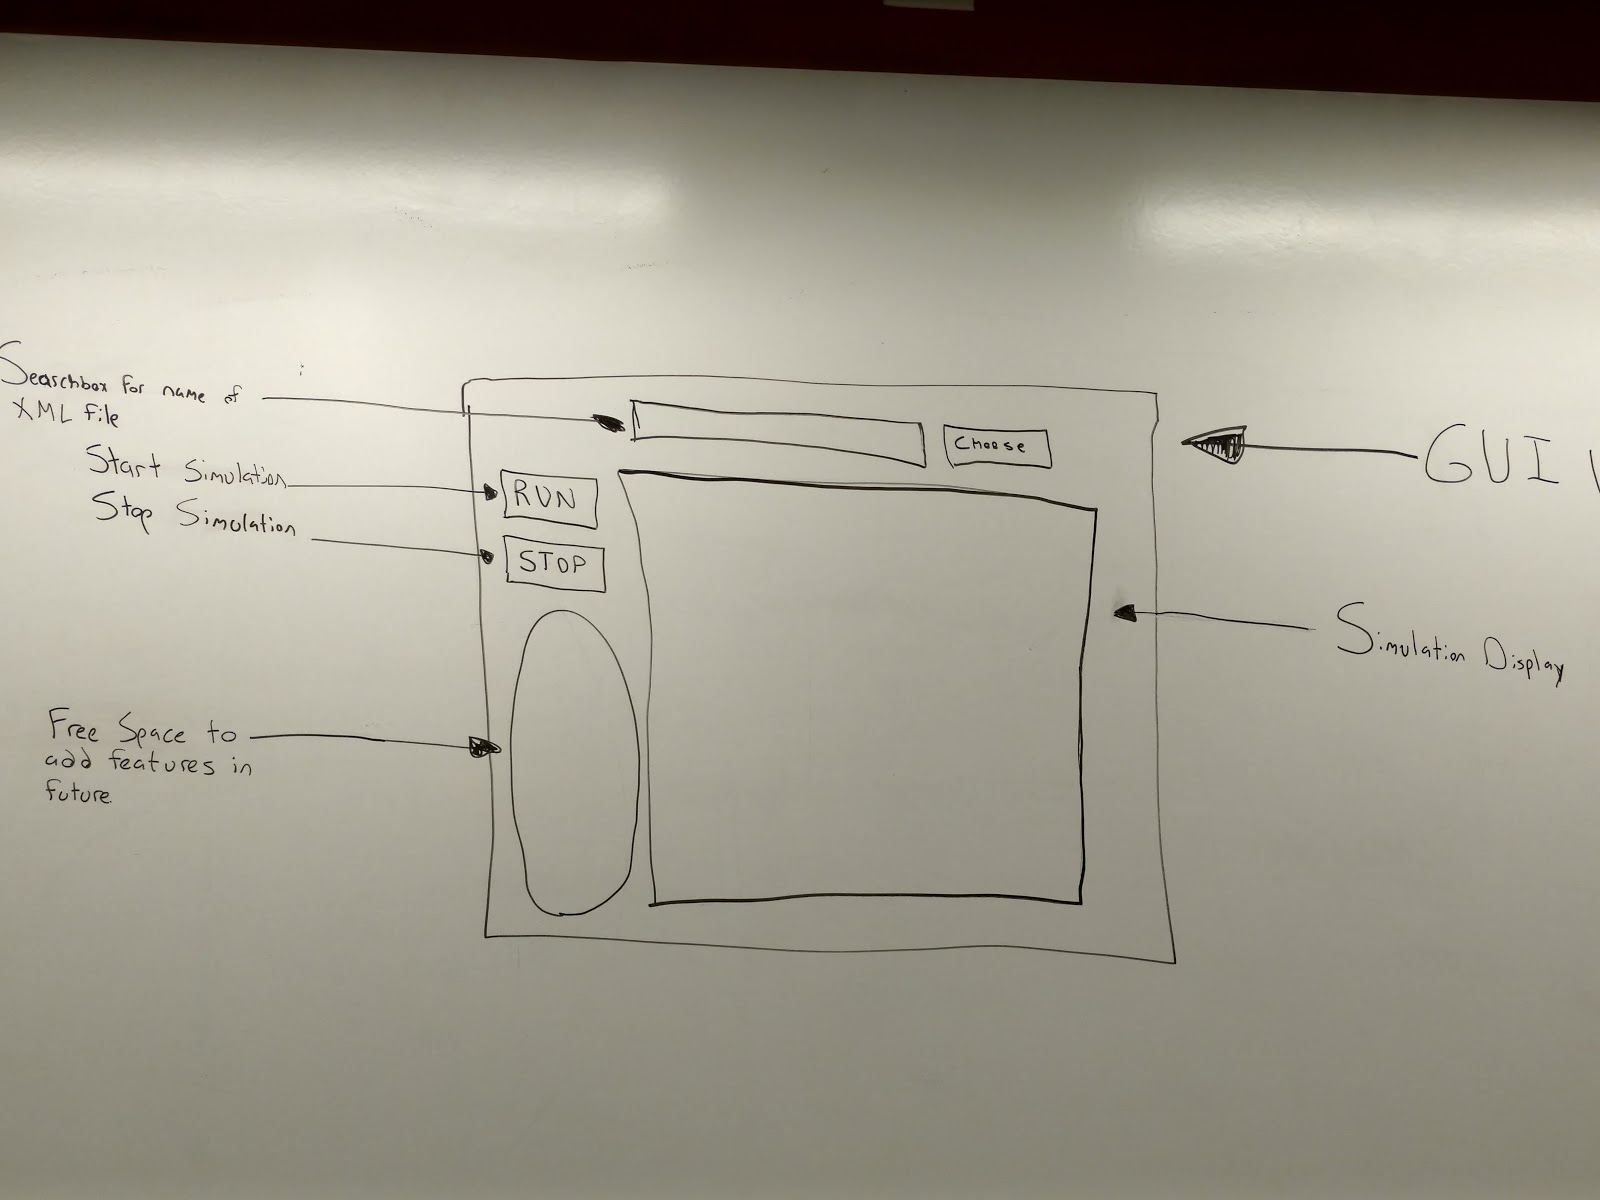 Searchbox for name of
XML file
Start Simulation
Stop Simulation
Free Space to
add features in
future.
Choose
RUN
STOP
GUI
Simulation Display